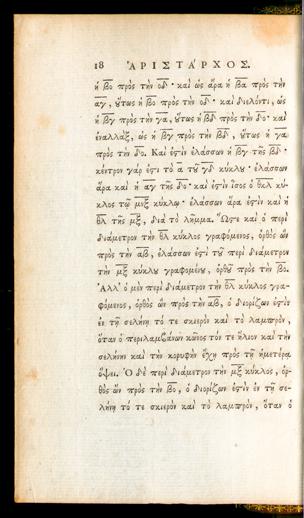 18 ἈΡΙΣΤΑΡΧΟΣ.
ἡ βο πρὸς τὴν οδ· καὶ ὡς ἄρα ἡ βα πρὸς τὴν
αγ, ὕτως ἡ βο πρὸς τὴν οδ· καὶ διελόντι, ὡς
ἡ βγ πρὸς τὴν γα, ὕτως ἡ βδ πρὸς τὴν δο· καὶ
ἐναλλὰξ, ὡς ἡ βγ πρὸς τὴν βδ, ὕτως ἡ γα
πρὸς τὴν δο. Καὶ ἐςὶν ἐλάσσων ἡ βγ τῆς βδ·
κέντρον γάρ ἐςι τὸ α τῦ γδ κύκλυ· ἐλάσσων
ἄρα καὶ ἡ αγ τῆς δο· καὶ ἐςὶν ἴσος ὁ θκλ κύκ-
λος τῷ μνξ κύκλῳ· ἐλάσσων ἄρα ἐςὶν καὶ ἡ
θλ τῆς μξ, διὰ τὸ λῆμμα. Ὥςε καὶ ὁ περὶ
διάμετρον τὴν θλ κύκλος γραφόμενος, ὀρθὸς ὢν
πρὸς τὴν αβ, ἐλάσσων ἐςὶ τῦ περὶ διάμετρον
τὴν μξ κύκλυ γραφομένυ, ὀρθῦ πρὸς τὴν βο.
Ἀλλ' ὁ μὲν περὶ διάμετρον τὴν θλ κύκλος γρα-
φόμενος, ὀρθὸς ὢν πρὸς τὴν αβ, ὁ διορίζων ἐςὶν
ἐν τῇ σελήνῃ τό τε σκιερὸν καὶ τὸ λαμπρὸν,
ὅταν ὁ περιλαμβάνων κῶνος τόν τε ἥλιον καὶ τὴν
σελήνην καὶ τὴν κορυφὴν ἔχῃ πρὸς τῇ ἡμετέρᾳ
ὄψει. Ὁ δὲ περὶ διάμετρον τὴν μξ κύκλος, ὀρ-
θὸς ὢν πρὸς τὴν βο, ὁ διορίζων ἐςὶν ἐν τῇ σε-
λήνῃ τό τε σκιερὸν καὶ τὸ λαμπρὸν, ὅταν ὁ